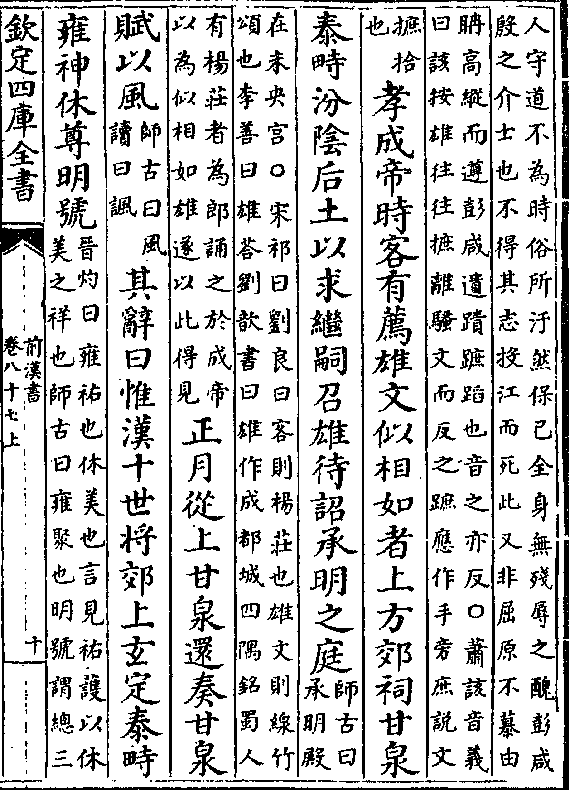 人守道不為時俗所汙然保己全身無殘辱之醜彭咸
殷之介士也不得其志投江而死此又非屈原不慕由
聃高縱而遵彭咸遺蹟蹠蹈也音之亦反○蕭該音義
曰該按雄往往摭離騷文而反之蹠應作手旁庶説文
摭拾
也
孝成帝時客有薦雄文似相如者上方郊祠甘泉
泰畤汾陰后土以求繼嗣召雄待詔承明之庭
師古曰
承明殿
在未央宫○宋祁曰劉良曰客則楊莊也雄文則線竹
頌也李善曰雄荅劉歆書曰雄作成都城四隅銘蜀人
有楊莊者為郎誦之於成帝
以為似相如雄遂以此得見
正月從上甘泉還奏甘泉
賦以風
師古曰風
讀曰諷
其辭曰惟漢十世将郊上玄定泰畤
雍神休尊明號
晉灼曰雍祐也休美也言見祐護以休
美之祥也師古曰雍聚也明號謂總三
欽定四庫全書
前漢書
卷八十七上
十